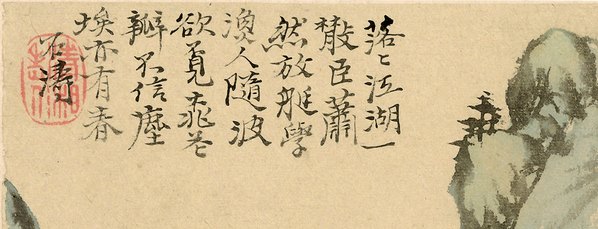 落〻江湖一
散臣蕭
然放艇學
漁人隨波
欲覓桃花
瓣不信塵
埃亦有春
石濤